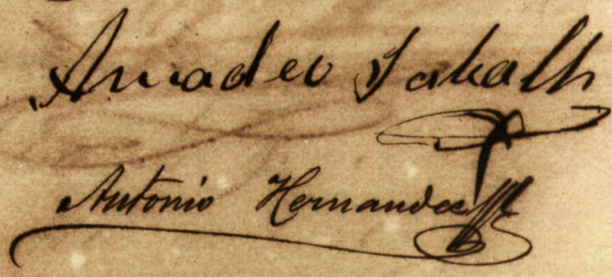 Amadeo Sakalh
Antonio Hernandez